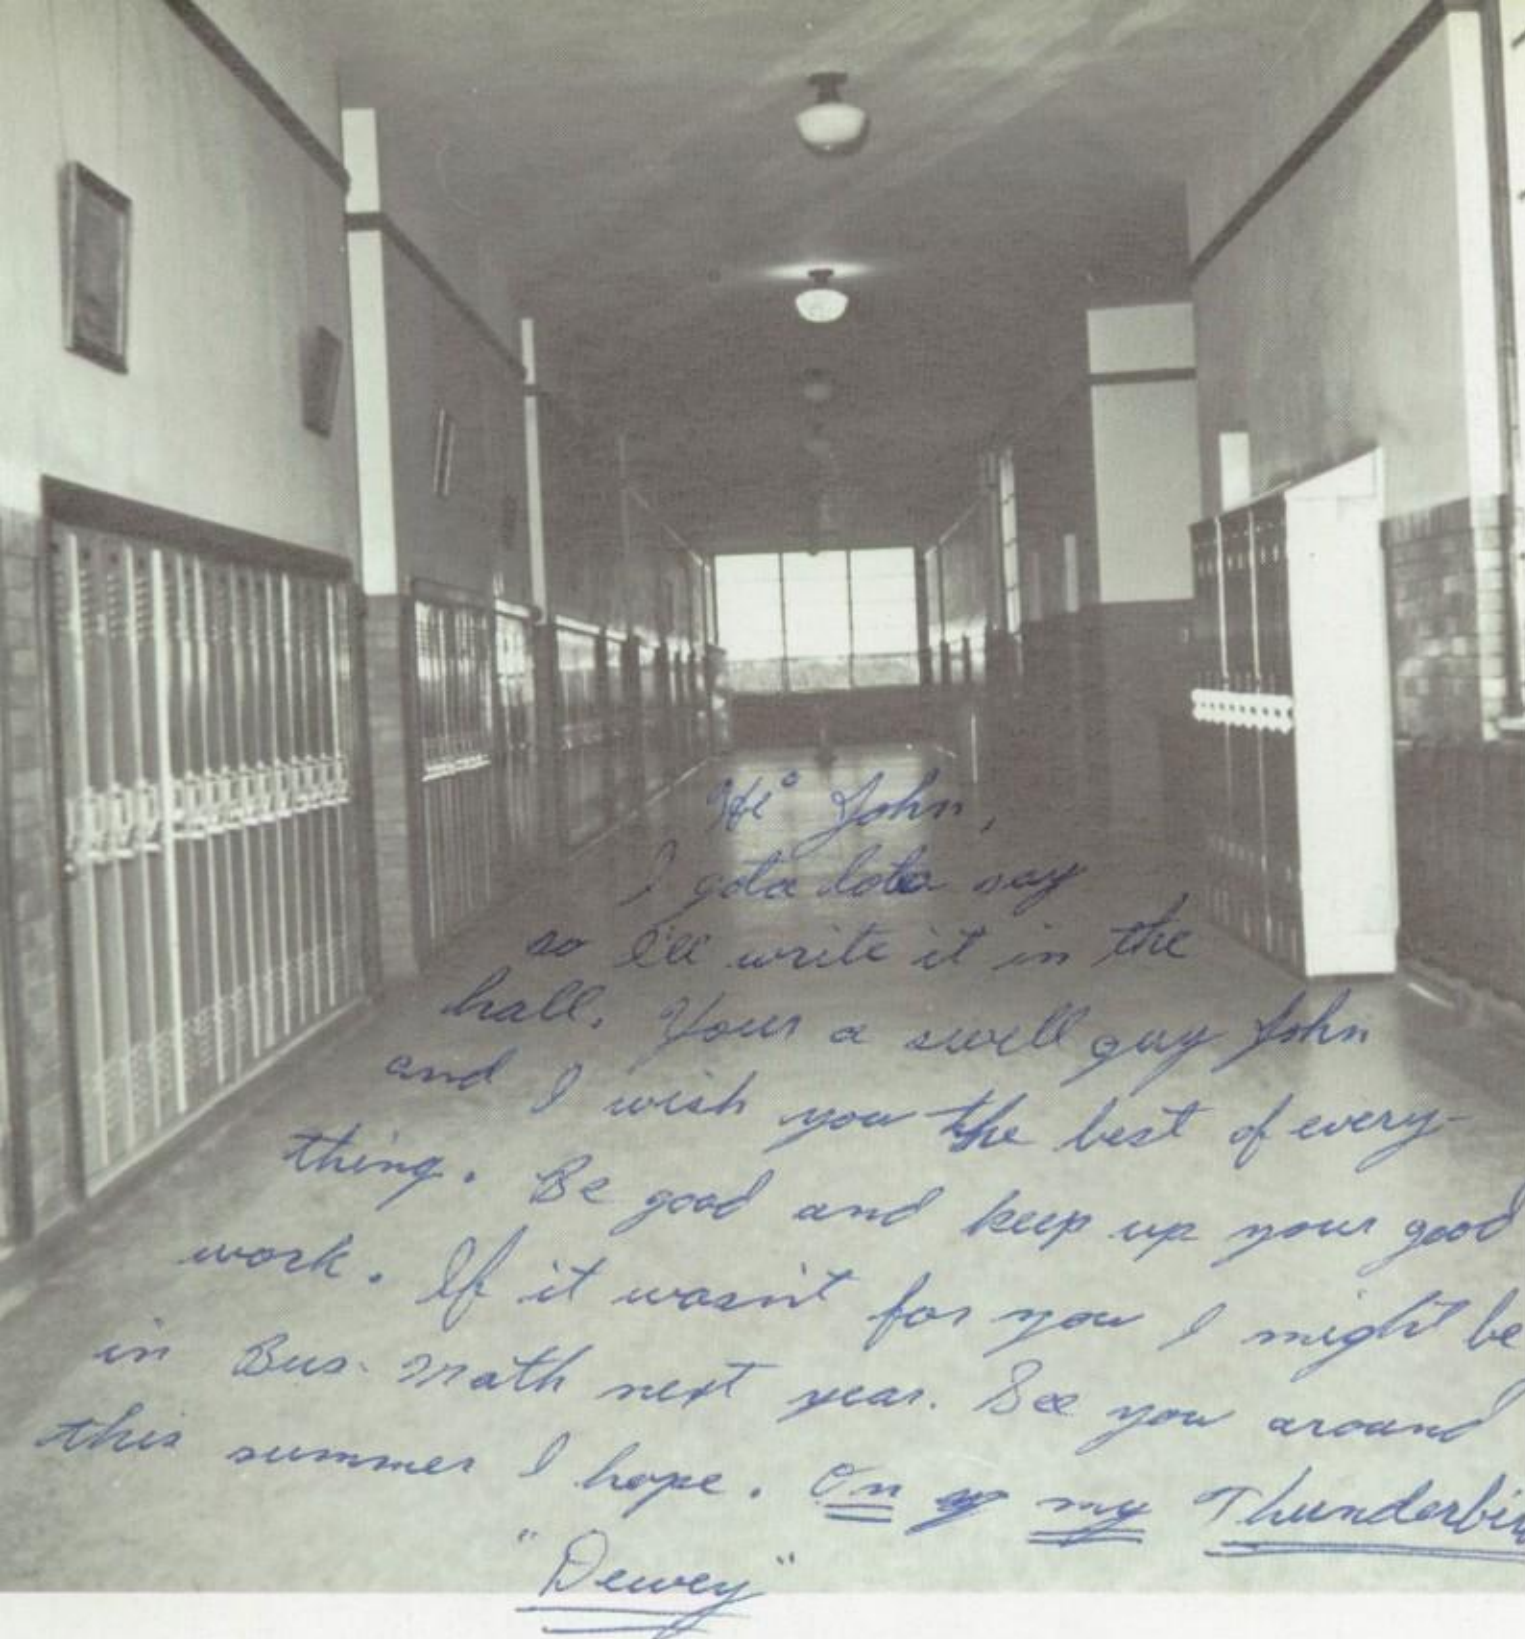 Hi John,
I gota lota say
so I'll write it in the
hall. Your a swell guy John
and I wish you the best of every-
thing. Be good and keep up your good
work. If it wasn't for you I might be
in Bus. Math next year. See you around
this summer I hope. On my Thunderbir
"Dewey"